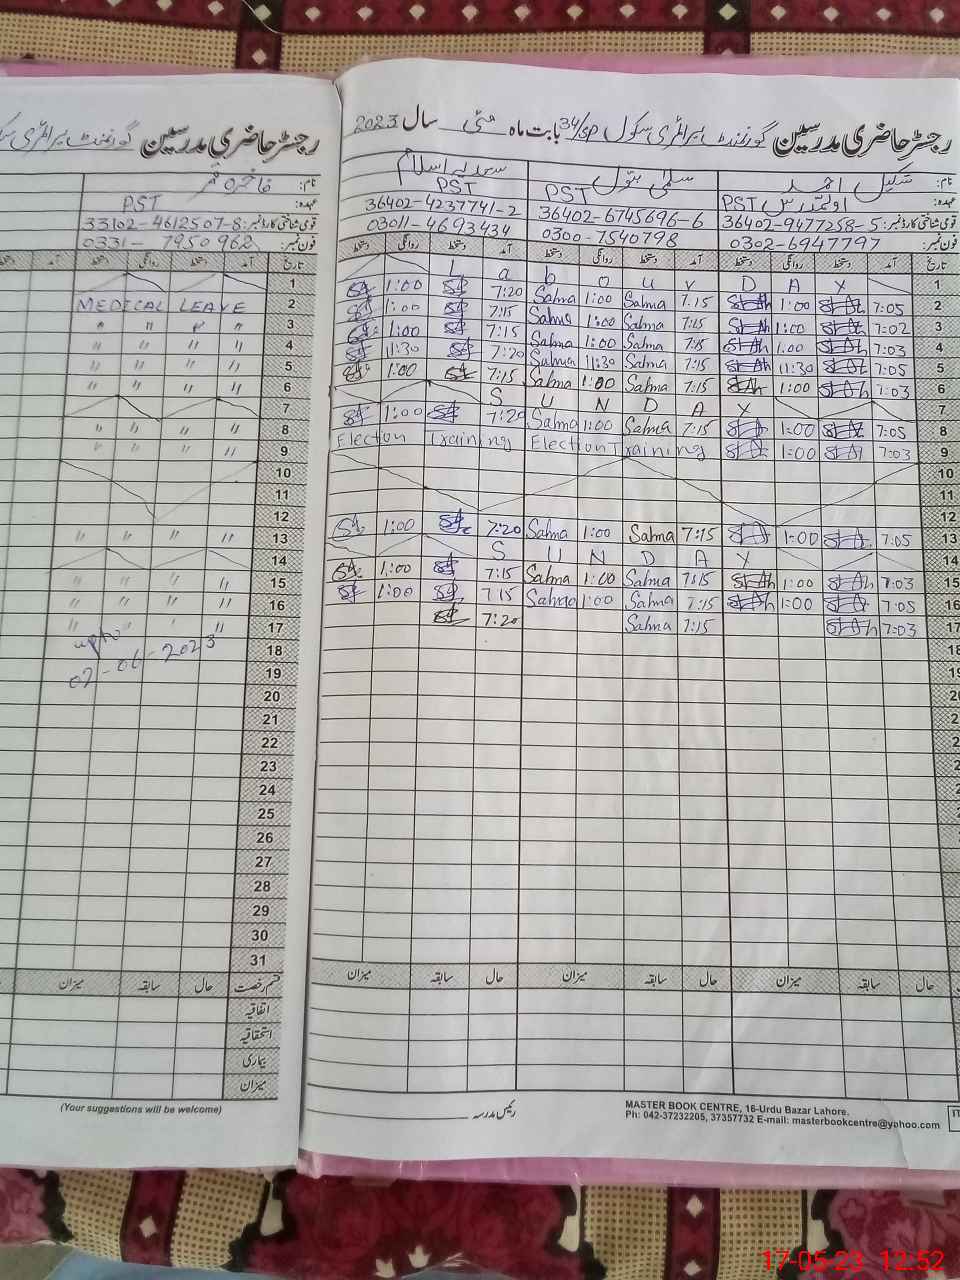 رجسٹر حاضری مدرسین گورنمنٹ پرائمری سکول 34/SP بابت ماہ مئی سال 2023
نام: شکیل احمد سلمیٰ بتول سعدیہ اسلام
عہدہ: اول مدرس PST PST PST
قومی شناختی کارڈ نمبر: 36402-9477258-5 36402-6745696-6 36402-4237741-2
فون نمبر: 0302-6947797 0300-7540798 03011-4693434
تاریخ آمد دستخط روانگی دستخط آمد دستخط روانگی دستخط آمد دستخط روانگی دستخط
L a b o u r D A Y 1
1:00 7:20 Salma 1:00 Salma 7:15 1:00 7:05 2
1:00 7:15 Salma 1:00 Salma 7:15 1:00 7:02 3
1:00 7:15 Salma 1:00 Salma 7:15 1:00 7:03 4
11:30 7:20 Salma 11:30 Salma 7:15 11:30 7:05 5
1:00 7:15 Salma 1:00 Salma 7:15 1:00 7:03 6
S U N D A Y 7
1:00 7:20 Salma 1:00 Salma 7:15 1:00 7:05 8
Election Training Election Training 1:00 7:03 9
10
11
12
1:00 7:20 Salma 1:00 Salma 7:15 1:00 7:05 13
S U N D A Y 14
1:00 7:15 Salma 1:00 Salma 7:15 1:00 7:03 15
1:00 7:15 Salma 1:00 Salma 7:15 1:00 7:05 16
7:20 Salma 7:15 7:03 17
18
19
20
21
22
میزان سابقہ حال میزان سابقہ حال میزان سابقہ حال
رئیس مدرسہ
MASTER BOOK CENTRE, 16-Urdu Bazar Lahore.
Ph: 042-37232205, 37357732 E-mail: masterbookcentre@yahoo.com
رجسٹر حاضری مدرسین گورنمنٹ پرائمری
نام: فاخرہ قمر
عہدہ: PST
قومی شناختی کارڈ نمبر: 33102-4612507-8
فون نمبر: 0331-7950962
تاریخ آمد دستخط روانگی دستخط آمد
1
MEDICAL LEAVE 2
" " " " 3
" " " " 4
" " " " 5
" " " " 6
7
" " " " 8
" " " " 9
10
11
12
" " " " 13
14
" " " " 15
" " " " 16
" " " " 17
upto 18
07-06-2023 19
20
21
22
23
24
25
26
27
28
29
30
31
قسم رخصت حال سابقہ میزان
اتفاقیہ
استحقاقیہ
بیماری
میزان
(Your suggestions will be welcome)
17-05-23 12:52